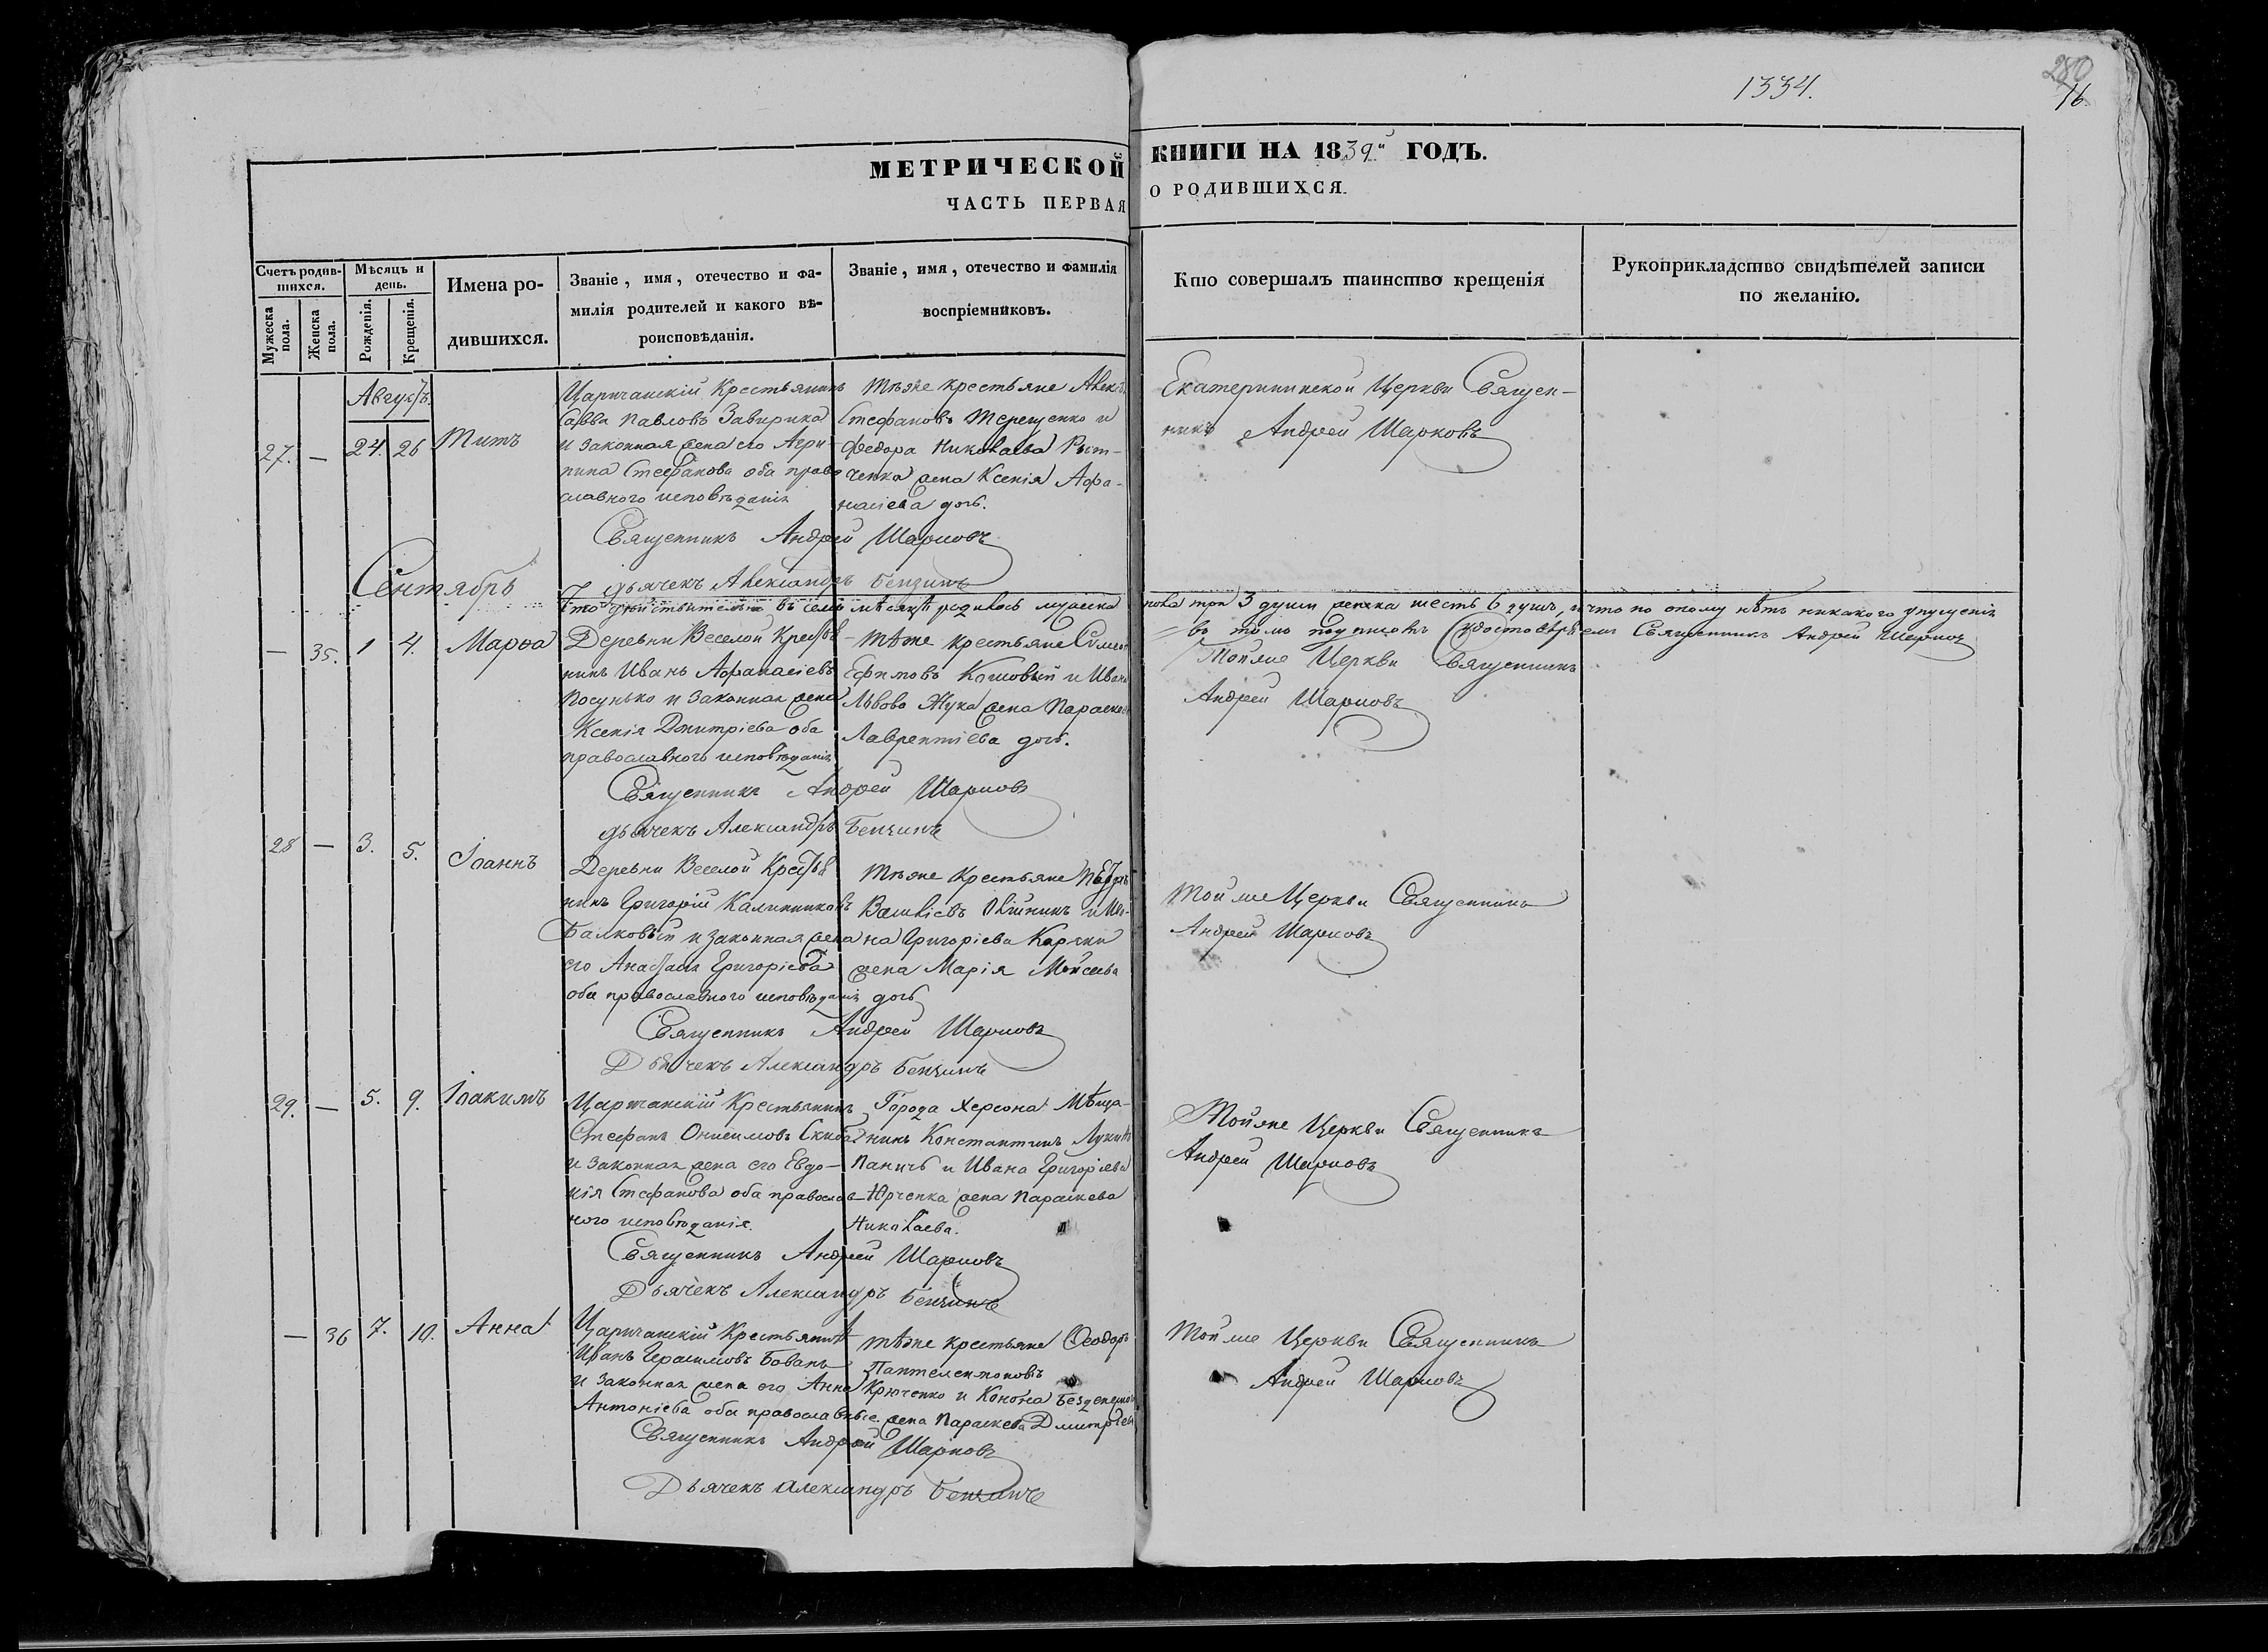 1334.
280
16.
МЕТРИЧЕСКОЙ КНИГИ НА 1839й ГОДЪ.
ЧАСТЬ ПЕРВАЯ О РОДИВШИХСЯ.
Счетъ родив-
шихся.
Мужеска пола.
Женска пола.
Мѣсяцъ и
день.
Рожденія.
Крещенія.
Имена ро-
дившихся.
Званіе, имя, отечество и фа-
милія родителей и какого вѣ-
роисповѣданія.
Званіе, имя, отечество и фамилія
воспріемниковъ.
Кто совершалъ таинство крещенія
Рукоприкладство свидѣтелей записи
по желанію.
Августъ
27. — 24. 26 Титъ
Царичанскій Крестьянинъ
Савва Павловъ Завирика
и законная жена его Агри-
пина Стефанова оба право
славного исповѣданія
Тѣже крестьяне
Стефановъ Терещенко и
Федора Николаева
ченка жена Ксенія Афа-
насіева дочь.
Екатерининской Церкви Священ-
никъ Андрей Шарковъ
Священникъ Андрей Шарковъ
дьячекъ Александръ Бензинъ
Сентябрь
Что действительно въ семъ мѣсяцѣ родилось мужеска пола три 3 души женска шесть 6 душъ, и что по оному нѣтъ никакого упущенія
въ томъ подписомъ удостовѣряемъ Священникъ Андрей Шарковъ
— 35. 1 4. Марѳа
Деревни Веселой Крестья-
нинъ Иванъ Афанасіевъ
Посунько и законная жена
Ксенія Дмитріева оба
православного исповѣданія
Тѣже крестьяне
Ефимовъ Кошовый и Ивана
Львова Жука жена Параскева
Лаврентіева дочь.
Тойже Церкви Священникъ
Андрей Шарковъ
Священникъ Андрей Шарковъ
дьячекъ Александръ Бензинъ
28 — 3. 5. Іоаннъ
Деревни Веселой Крестья
нинъ Григорій Калинниковъ
Балковый и законная жена
его Анастасія Григоріева
оба православного исповѣданія
Тѣже крестьяне
Василіевъ Олійникъ и Ив-
на Григоріева
жена Марія Моисеева
дочь
Тойже Церкви Священникъ
Андрей Шарковъ
Священникъ Андрей Шарковъ
Дьячекъ Александръ Бензинъ
29. — 5. 9. Іоакимъ
Царичанскій Крестьянинъ
Стефанъ Онисимовъ Скиба
и законная жена его Евдо-
кія Стефанова оба православ-
ного исповѣданія.
Города Херсона Мѣща-
нинъ Константинъ
Паничъ и Ивана Григоріева
Юрченка жена Параскева
Николаева.
Тойже Церкви Священникъ
Андрей Шарковъ
Священникъ Андрей Шарковъ
Дьячекъ Александръ Бензинъ
— 36 7. 10. Анна
Царичанскій Крестьянинъ
Иванъ Герасимовъ Бованъ
и законная жена его Анна
Антоніева оба православные.
тѣже крестьяне Ѳеодоръ
Пантелеимоновъ
Крюченко и Конона
жена Параскева Дмитріева
Тойже Церкви Священникъ
Андрей Шарковъ
Священникъ Андрей Шарковъ
Дьячекъ Александръ Бензинъ